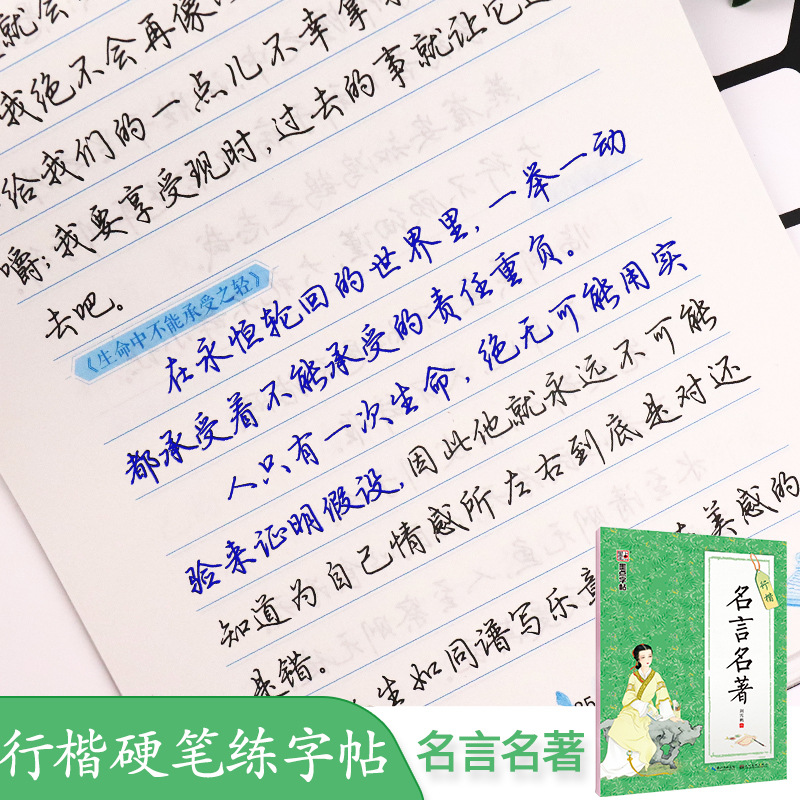 就会
我绝不会再像
给我们的一点儿不幸拿
嚼;我要享受现时,过去的事就让它过
去吧。
《生命中不能承受之轻》
在永恒轮回的世界里,一举一动
都承受着不能承受的责任重负。
人只有一次生命,绝无可能用实
验来证明假设,因此他就永远不可能
知道为自己情感所左右到底是对还
是错。
生如同谱写乐章
美感的
墨点字帖
行楷
名言名著
行楷硬笔练字帖
名言名著